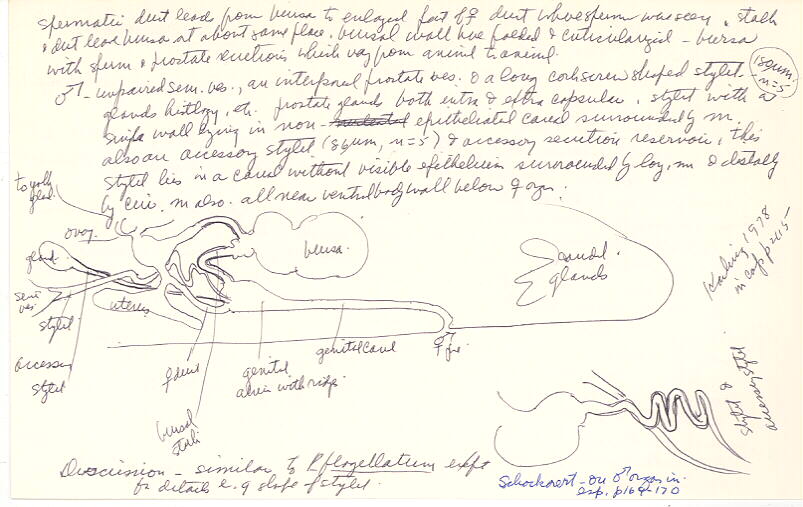 spermatic duct leads from bursa to enlarged part of ♀ duct where sperm was seen. stalk
& duct leave bursa at about same place. bursal wall has folded & cuticularized - bursa
with sperm & prostate secretions which vary from animal to animal.
♂ - unpaired sem. ves., an interposed prostate ves. & a long corkscrew shaped stylet
180µm, n=5
glands histology, etc. prostate glands both intra & extra capsular. stylet with a
single wall lying in non- epitheliated canal surrounded by m.
also an accessory stylet (86µm, n=5) & accessory secretion reservoir, this
stylet lies in a canal without visible epithelium surrounded by long. m & distally
by circ. m also. all near ventral body wall below ♀ organ.
to yolk
gland
ovary
gland
bursa.
caudal
glands
sem
ves.
stylet
uterus
accessory
stylet
♀ duct
genital
atrium with ridges
genital canal
♀♂ pore
bursal
stalk
Karling 1978
in cap p 215-
stylet &
accessory stylet
Discussion - similar to P flagellatum except
for details e.g. slope of stylet.
Schockaert - on ♂ organ in
esp. p169-170